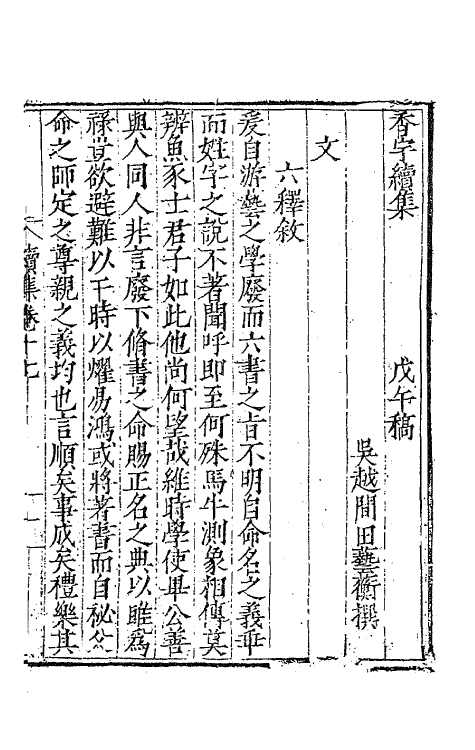 香宇續集　戊午稿
吳越間田藝蘅撰
文
六釋敘
爰自游藝之學廢而六書之旨不明自命名之義乖
而姓字之說不著聞呼即至何殊馬牛測象相傳莫
辨魚豕士君子如此他尚何望哉維時學使畢公善
與人同人非言廢下脩書之命賜正名之典以雎爲
祿豈欲避難以干時以燿易鴻或將著書而自祕公
命之師定之尊親之義均也言順矣事成矣禮樂其
續集卷十七　一